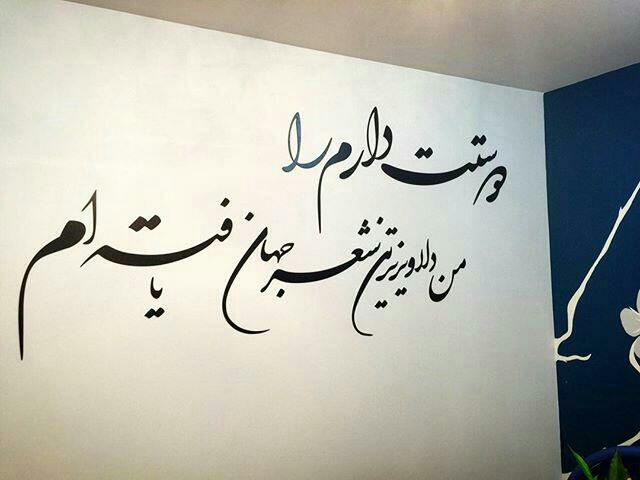 دوستت دارم را
من دلاویزترین شعر جهان یافته ام